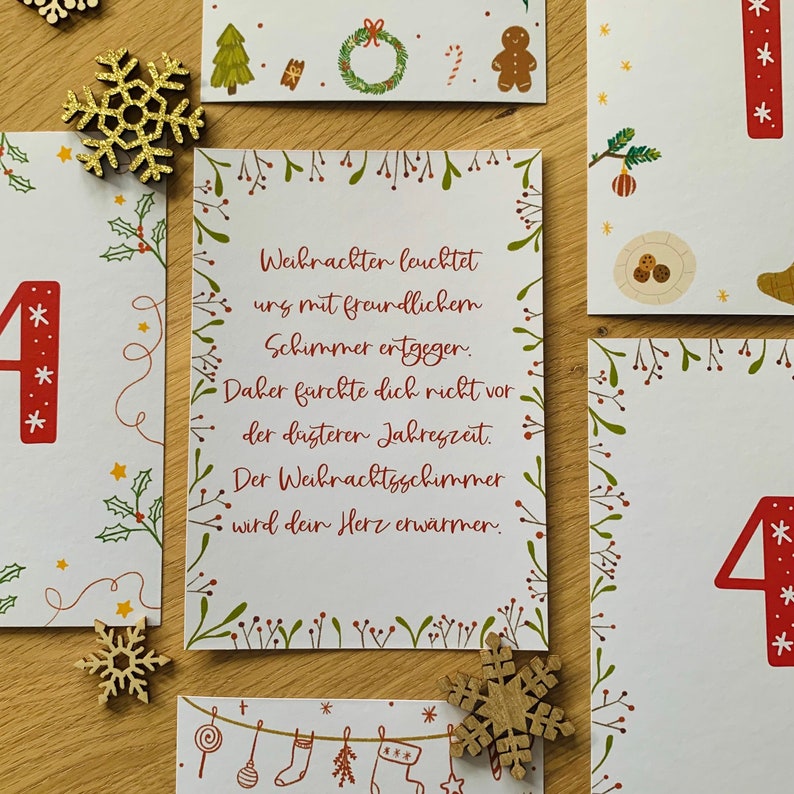 Weihnachten leuchtet
uns mit freundlichem
Schimmer entgegen.
Daher fürchte dich nicht vor
der düsteren Jahreszeit.
Der Weihnachtsschimmer
wird dein Herz erwärmen.
1
4
4